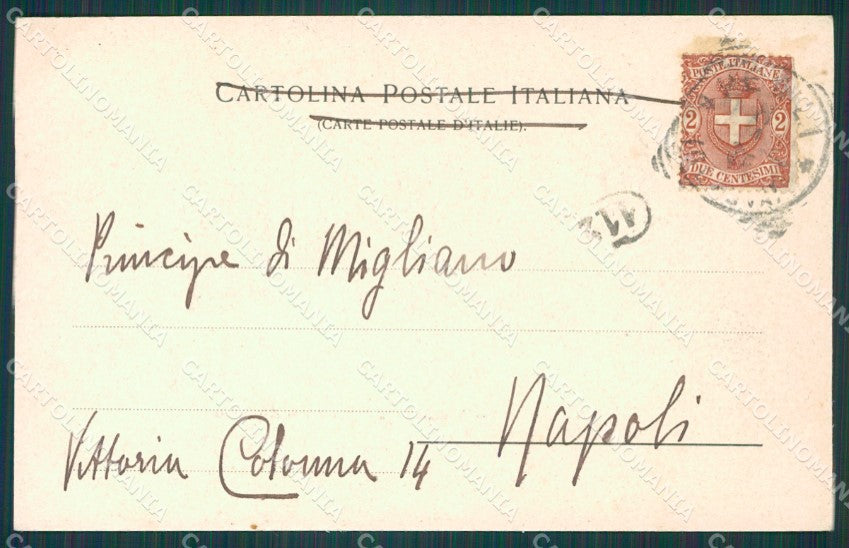 CARTOLINA POSTALE ITALIANA
(CARTE POSTALE D'ITALIE).
POSTE ITALIANE
2 2
DUE CENTESIMI
Principe di Migliano
Napoli
Vittoria Colonna 14
CARTOLINOMANIA